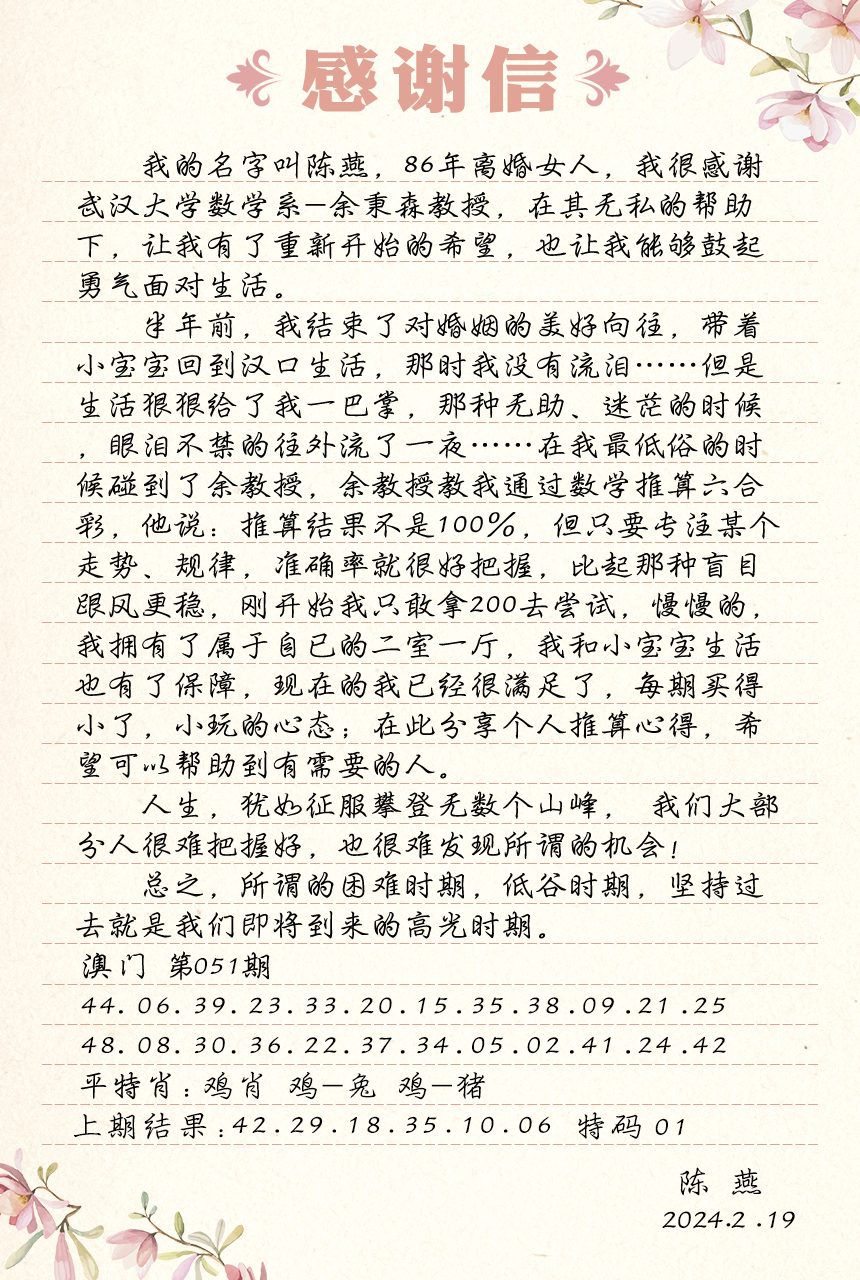 感谢信
我的名字叫陈燕，86年离婚女人，我很感谢
武汉大学数学系—余秉森教授，在其无私的帮助
下，让我有了重新开始的希望，也让我能够鼓起
勇气面对生活。
半年前，我结束了对婚姻的美好向往，带着
小宝宝回到汉口生活，那时我没有流泪……但是
生活狠狠给了我一巴掌，那种无助、迷茫的时候
，眼泪不禁的往外流了一夜……在我最低俗的时
候碰到了余教授，余教授教我通过数学推算六合
彩，他说：推算结果不是100%，但只要专注某个
走势、规律，准确率就很好把握，比起那种盲目
跟风更稳，刚开始我只敢拿200去尝试，慢慢的，
我拥有了属于自已的二室一厅，我和小宝宝生活
也有了保障，现在的我已经很满足了，每期买得
小了，小玩的心态；在此分享个人推算心得，希
望可以帮助到有需要的人。
人生，犹如征服攀登无数个山峰， 我们大部
分人很难把握好，也很难发现所谓的机会！
总之，所谓的困难时期，低谷时期，坚持过
去就是我们即将到来的高光时期。
澳门 第051期
44.06.39.23.33.20.15.35.38.09.21.25
48.08.30.36.22.37.34.05.02.41.24.42
平特肖：鸡肖 鸡—兔 鸡—猪
上期结果：42.29.18.35.10.06 特码 01
陈 燕
2024.2.19